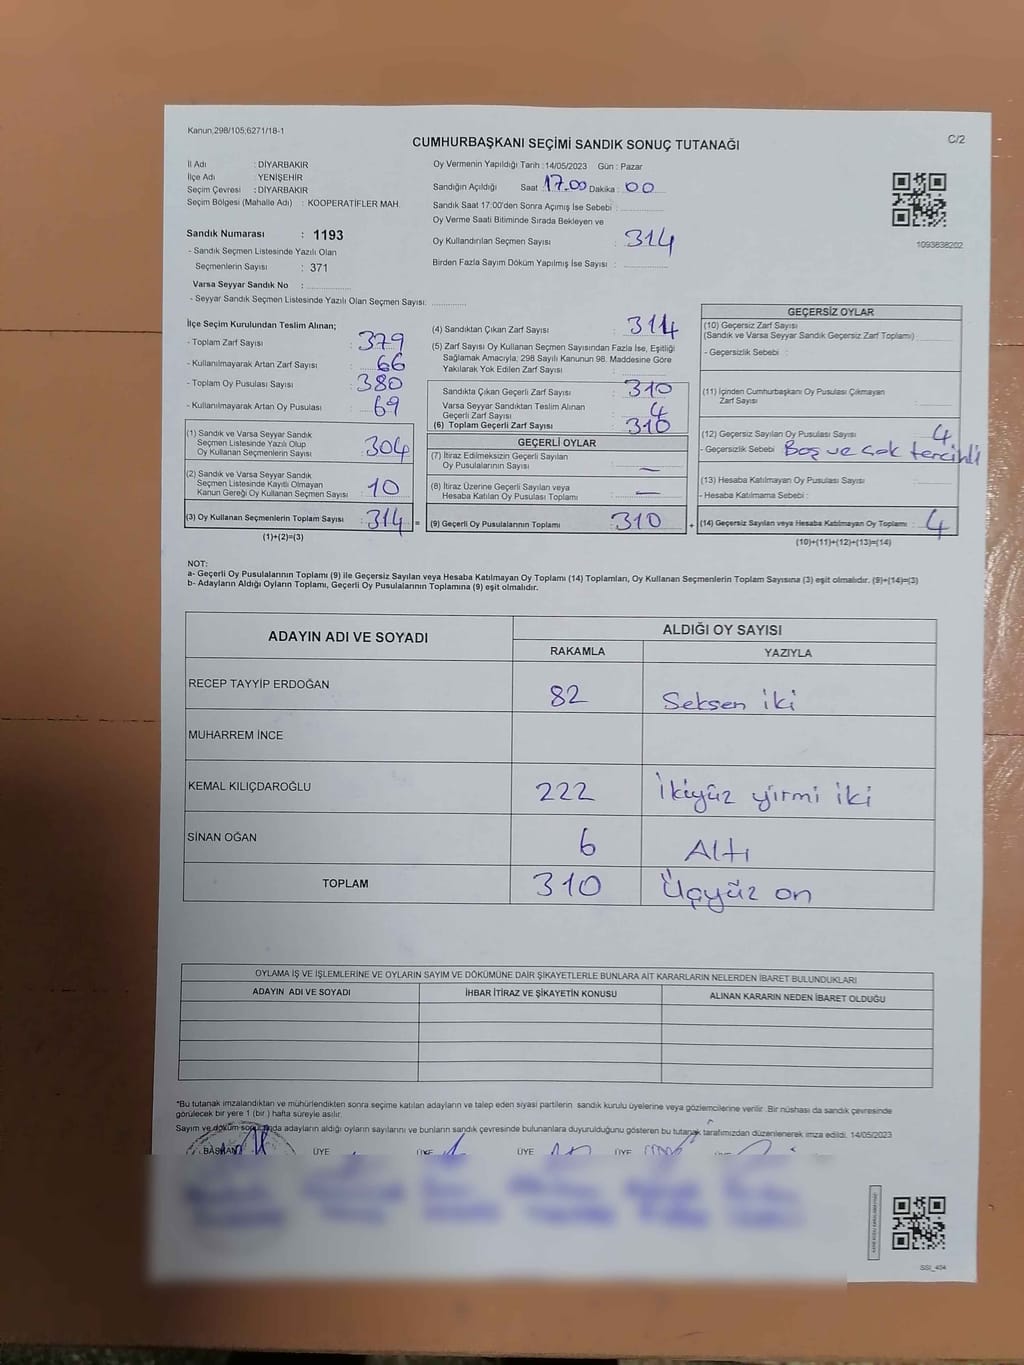 Kanun,298/105;6271/18-1
C/2
CUMHURBAŞKANI SEÇİMİ SANDIK SONUÇ TUTANAĞI
İl Adı : DİYARBAKIR
İlçe Adı : YENİŞEHİR
Seçim Çevresi : DİYARBAKIR
Seçim Bölgesi (Mahalle Adı) : KOOPERATİFLER MAH.
Sandık Numarası : 1193
- Sandık Seçmen Listesinde Yazılı Olan
Seçmenlerin Sayısı : 371
Varsa Seyyar Sandık No :
- Seyyar Sandık Seçmen Listesinde Yazılı Olan Seçmen Sayısı:
Oy Vermenin Yapıldığı Tarih :14/05/2023 Gün : Pazar
Sandığın Açıldığı Saat 17.00 Dakika : 00
Sandık Saat 17:00'den Sonra Açımış İse Sebebi :
Oy Verme Saati Bitiminde Sırada Bekleyen ve
Oy Kullandırılan Seçmen Sayısı : 314
Birden Fazla Sayım Döküm Yapılmış İse Sayısı :
1093838202
İlçe Seçim Kurulundan Teslim Alınan;
- Toplam Zarf Sayısı : 379
- Kullanılmayarak Artan Zarf Sayısı : 66
- Toplam Oy Pusulası Sayısı : 380
- Kullanılmayarak Artan Oy Pusulası : 69
(1) Sandık ve Varsa Seyyar Sandık
Seçmen Listesinde Yazılı Olup
Oy Kullanan Seçmenlerin Sayısı : 304
(2) Sandık ve Varsa Seyyar Sandık
Seçmen Listesinde Kayıtlı Olmayan
Kanun Gereği Oy Kullanan Seçmen Sayısı : 10
(3) Oy Kullanan Seçmenlerin Toplam Sayısı : 314 =
(1)+(2)=(3)
(4) Sandıktan Çıkan Zarf Sayısı : 314
(5) Zarf Sayısı Oy Kullanan Seçmen Sayısından Fazla İse, Eşitliği
Sağlamak Amacıyla; 298 Sayılı Kanunun 98. Maddesine Göre
Yakılarak Yok Edilen Zarf Sayısı :
Sandıkta Çıkan Geçerli Zarf Sayısı : 310
Varsa Seyyar Sandıktan Teslim Alınan
Geçerli Zarf Sayısı : 4
(6) Toplam Geçerli Zarf Sayısı : 310
GEÇERLİ OYLAR
(7) İtiraz Edilmeksizin Geçerli Sayılan
Oy Pusulalarının Sayısı : —
(8) İtiraz Üzerine Geçerli Sayılan veya
Hesaba Katılan Oy Pusulası Toplamı : —
(9) Geçerli Oy Pusulalarının Toplamı : 310 +
GEÇERSİZ OYLAR
(10) Geçersiz Zarf Sayısı
(Sandık ve Varsa Seyyar Sandık Geçersiz Zarf Toplamı) :
- Geçersizlik Sebebi :
(11) İçinden Cumhurbaşkanı Oy Pusulası Çıkmayan
Zarf Sayısı :
(12) Geçersiz Sayılan Oy Pusulası Sayısı : 4
- Geçersizlik Sebebi : Boş ve çok tercihli
(13) Hesaba Katılmayan Oy Pusulası Sayısı :
- Hesaba Katılmama Sebebi :
(14) Geçersiz Sayılan veya Hesaba Katılmayan Oy Toplamı : 4
(10)+(11)+(12)+(13)=(14)
NOT:
a- Geçerli Oy Pusulalarının Toplamı (9) ile Geçersiz Sayılan veya Hesaba Katılmayan Oy Toplamı (14) Toplamları, Oy Kullanan Seçmenlerin Toplam Sayısına (3) eşit olmalıdır. (9)+(14)=(3)
b- Adayların Aldığı Oyların Toplamı, Geçerli Oy Pusulalarının Toplamına (9) eşit olmalıdır.
ADAYIN ADI VE SOYADI ALDIĞI OY SAYISI
RAKAMLA YAZIYLA
RECEP TAYYİP ERDOĞAN 82 Seksen iki
MUHARREM İNCE
KEMAL KILIÇDAROĞLU 222 İkiyüz yirmi iki
SİNAN OĞAN 6 Altı
TOPLAM 310 Üçyüz on
OYLAMA İŞ VE İŞLEMLERİNE VE OYLARIN SAYIM VE DÖKÜMÜNE DAİR ŞİKAYETLERLE BUNLARA AİT KARARLARIN NELERDEN İBARET BULUNDUKLARI
ADAYIN ADI VE SOYADI İHBAR İTİRAZ VE ŞİKAYETİN KONUSU ALINAN KARARIN NEDEN İBARET OLDUĞU
*Bu tutanak imzalandıktan ve mühürlendikten sonra seçime katılan adayların ve talep eden siyasi partilerin sandık kurulu üyelerine veya gözlemcilerine verilir. Bir nüshası da sandık çevresinde
görülecek bir yere 1 (bir ) hafta süreyle asılır.
Sayım ve döküm sonunda adayların aldığı oyların sayılarını ve bunların sandık çevresinde bulunanlara duyurulduğunu gösteren bu tutanak tarafımızdan düzenlenerek imza edildi. 14/05/2023
BAŞKAN ÜYE ÜYE ÜYE ÜYE
SSI_404